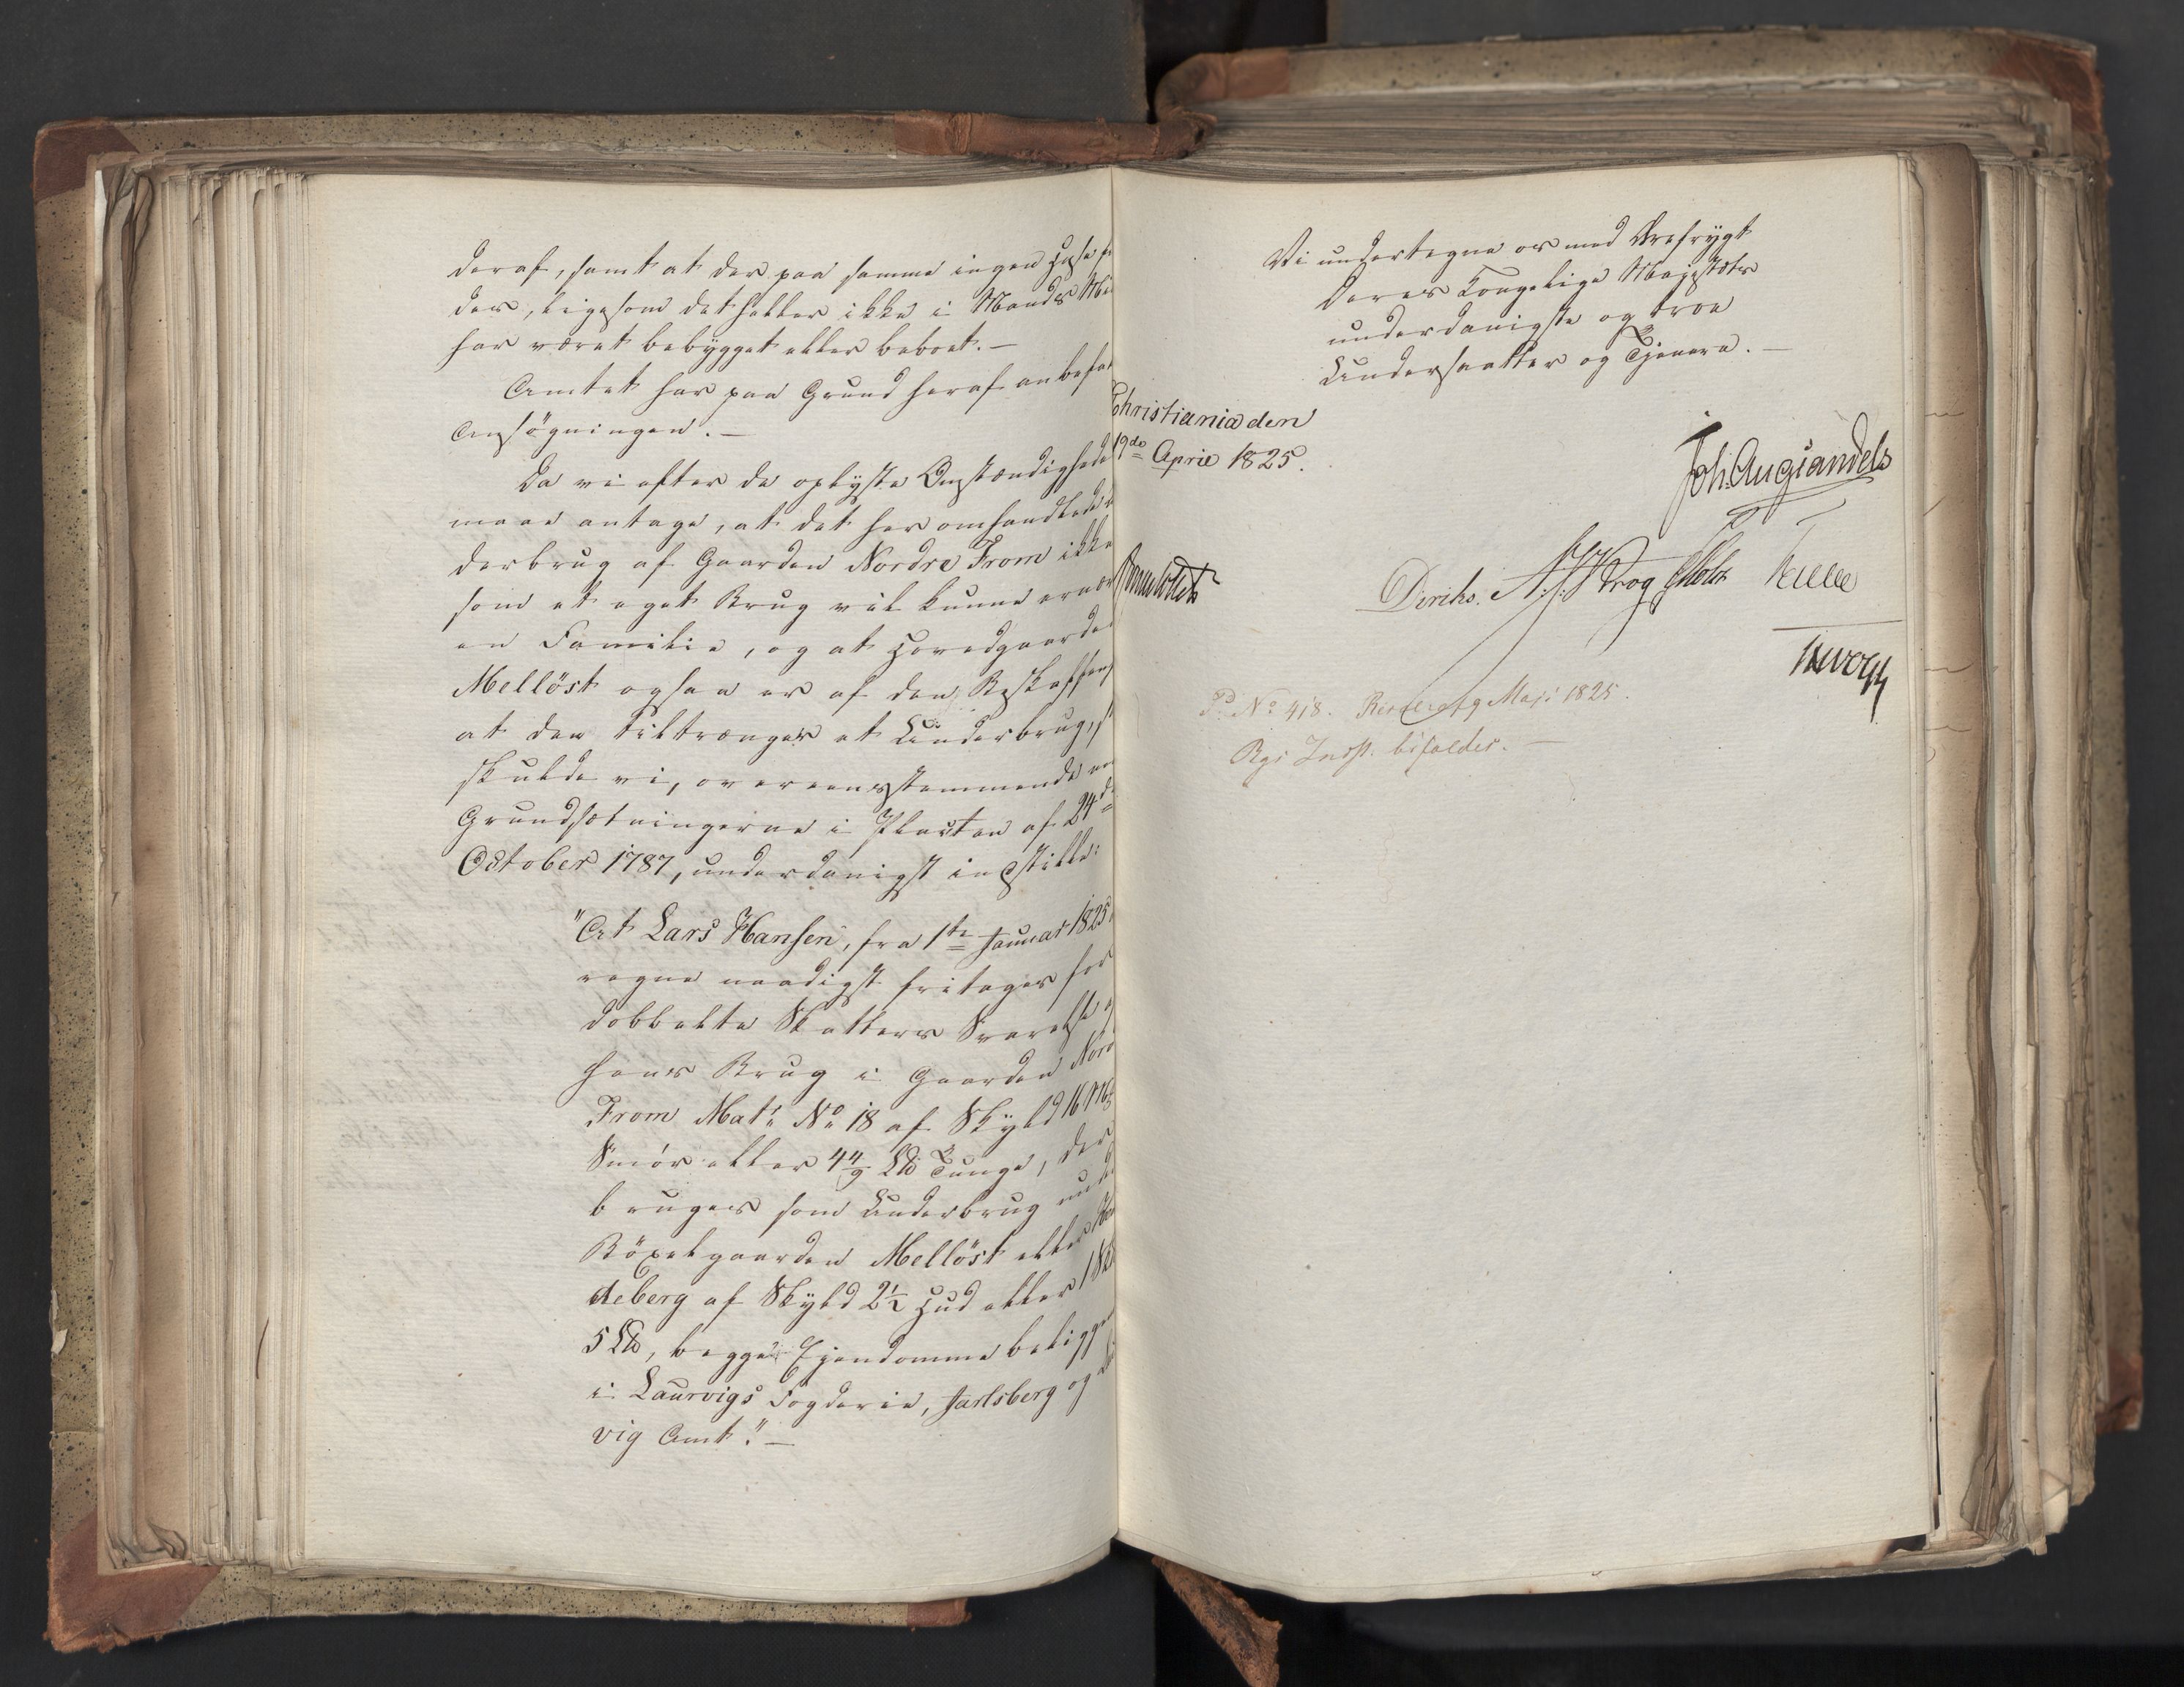 deraf, samt at der paa samme ingen Huse
der, ligesom det heller ikke i Mands
har været bebygget eller beboet.—
Amtet har paa Grund heraf anbefa
Ansøgningen.—
Da vi efter de oplyste Omstændighede
maae antage, at det her omhandlede
derbrug af Gaarden Nordre From ikke
som et eget Brug vil kunne ernær
en Familie, og at Hovedgaarden
Mellöst ogsaa er af den Beskaffen
at den tiltrænger et Underbrug,
skulde vi, overeensstemmende
Grundsætningerne i Placaten af 24d
October 1787, underdanigst indstille:
"At Lars Hansen, fra 1ste Januar 1825
regne naadigst fritages for
dobbelte Skatters Svarelse
hans Brug i Gaarden Nord
From Matr No 18 af Skyld 16
Smør eller 4 4/9 L℔ Tunge, der
bruges som Underbrug unde
Böxelgaarden Mellöst eller
deberg af Skyld 2½ Hud eller
5 L℔, begge Ejendomme beligge
i Laurvigs Fogderie, Jarlsberg og
vig Amt."—
Vi undertegne os med Ærefrygt
Deres Kongelige Majestæts
underdanigste og troe
Undersaatter og Tjenere.—
Christiania den
19de April 1825.
Joh. Aug. Sandels
Diriks. Krog Holst
P. No 418. 9 Maji 1825.
Rgs Indst. bifaldes.—